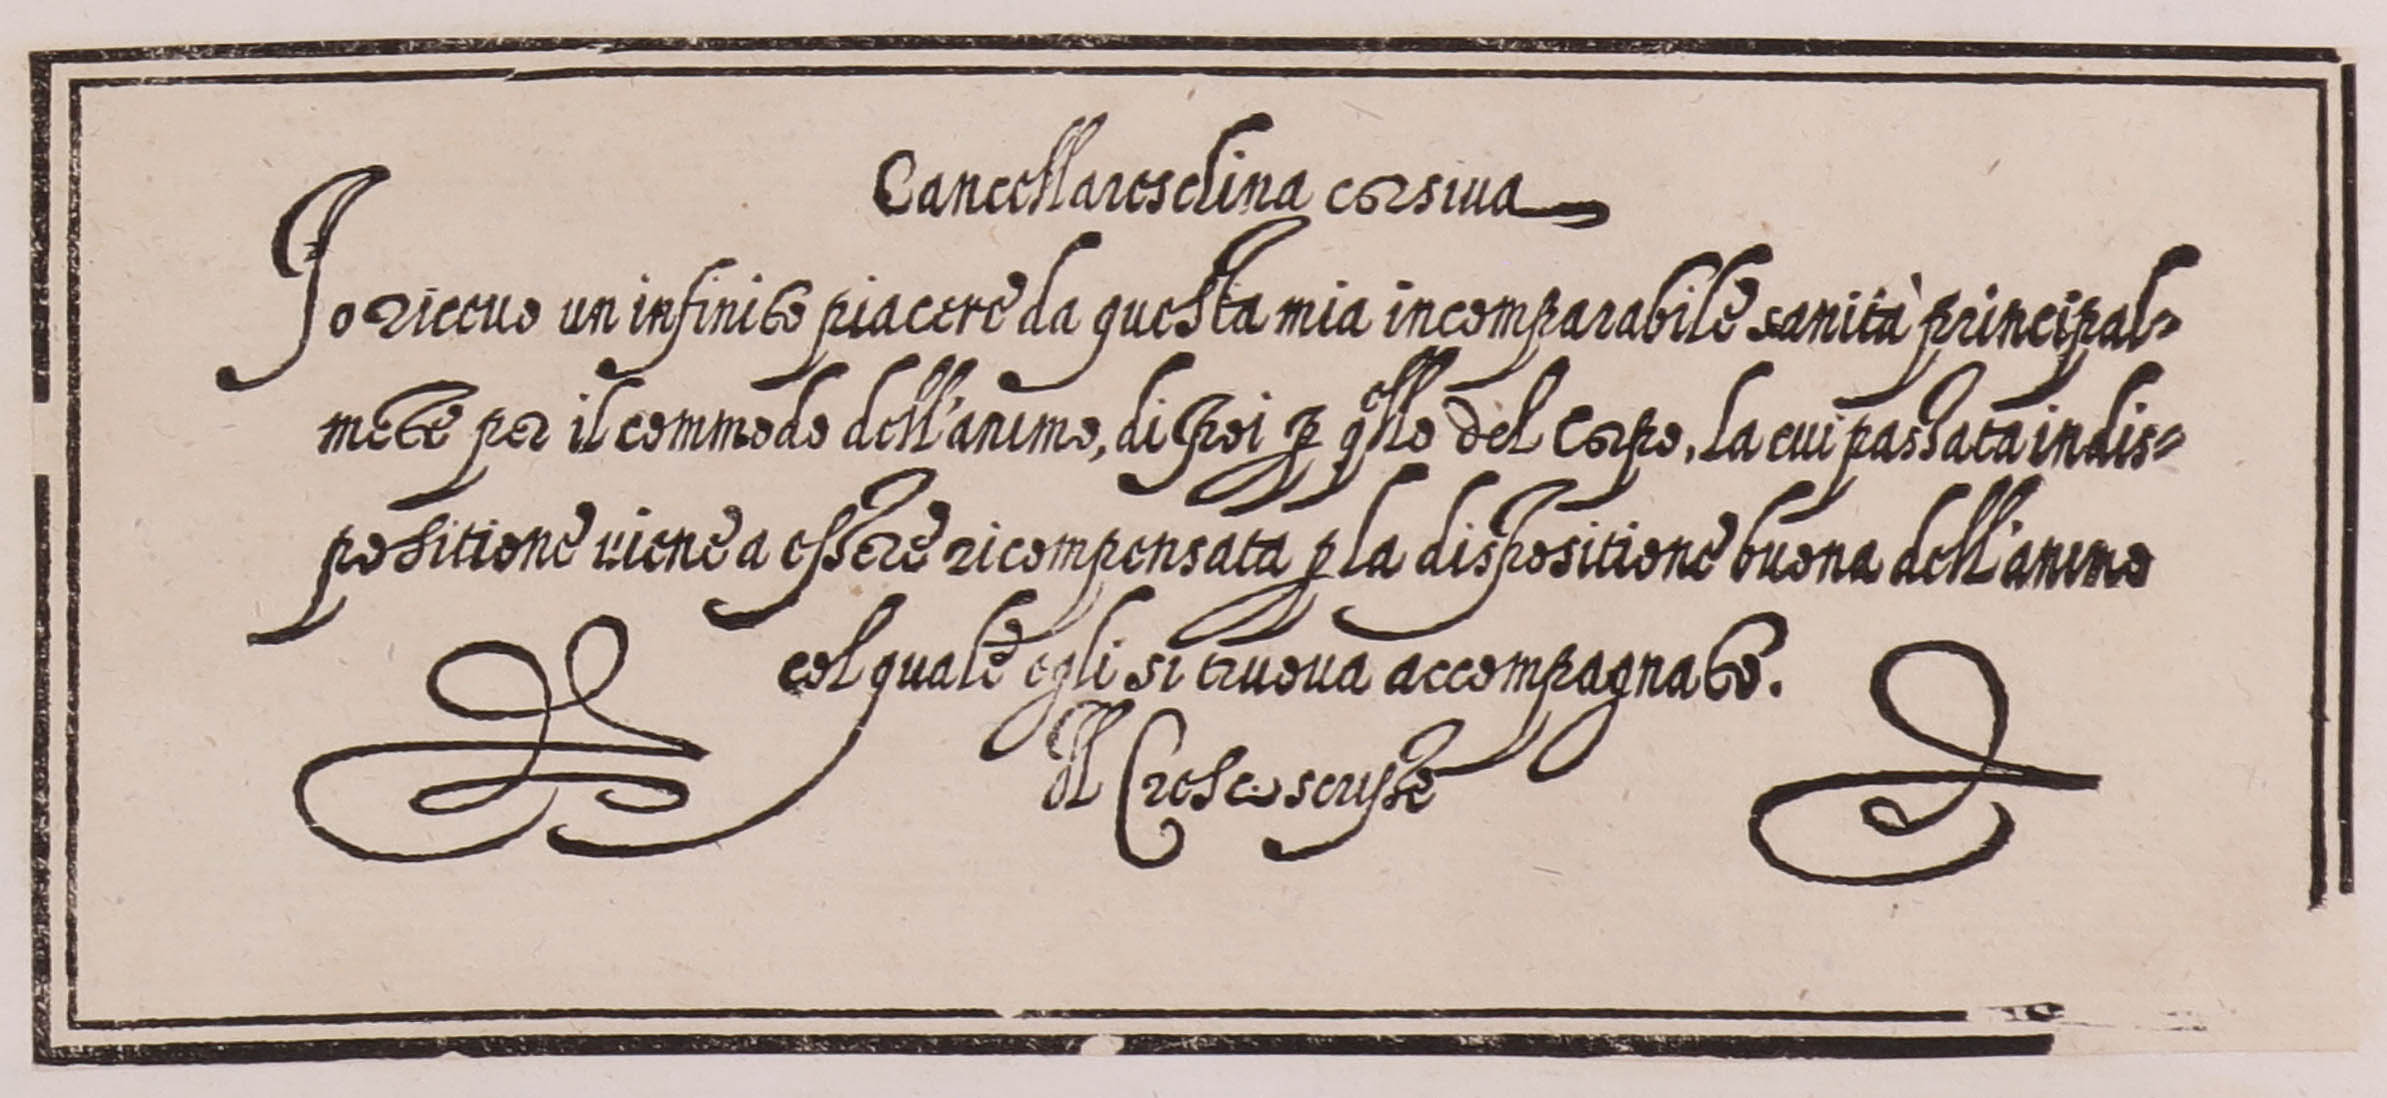 Cancellareschina corsiua
Io riceuo un infinito piacere da questa mia incomparabile sanità principal-
mẽte per il commodo dell'animo, di poi ꝑ q̃llo del corpo, la cui passata indis-
positione uiene a essere ricompensata ꝑ la dispositione buona dell'animo
col quale egli si truoua accompagnato.
Il Cresci scriße